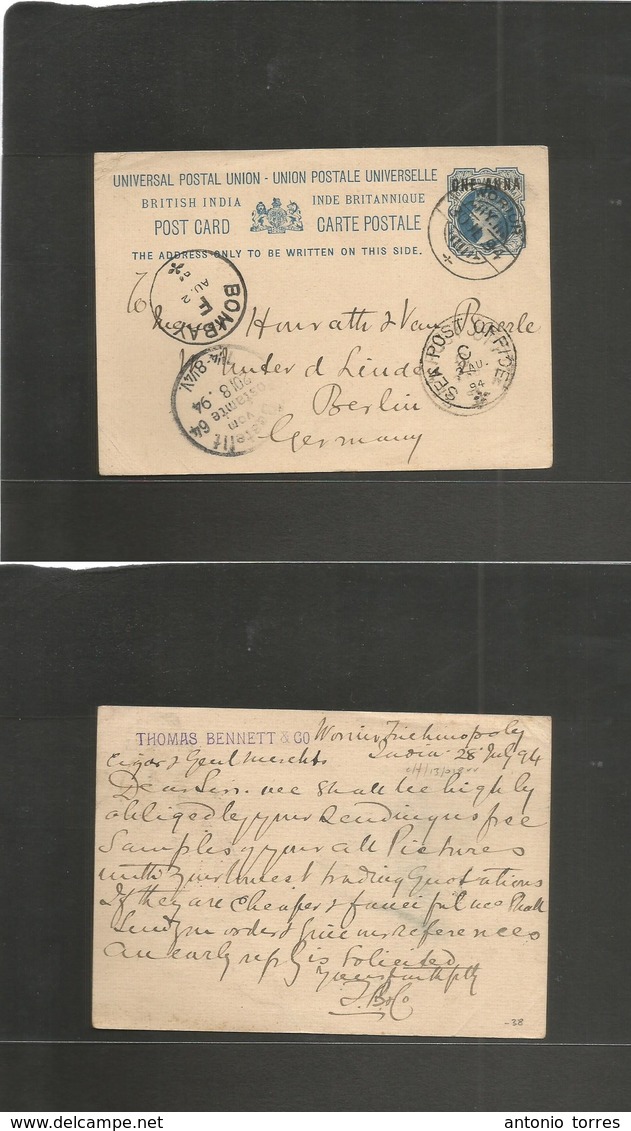 UNIVERSAL POSTAL UNION - UNION POSTALE UNIVERSELLE
BRITISH INDIA INDE BRITANNIQUE
POST CARD CARTE POSTALE
THE ADDRESS ONLY TO BE WRITTEN ON THIS SIDE.
ONE ANNA
BOMBAY
F
AU. 2
SEA POST OFFICE
C
2 AU.
94
Horvath & Van
Unter d Linden
Berlin
Germany
Bestellt
vom
Postamte 64
8.94
THOMAS BENNETT & CO Trichinopoly
Cigar & Genl Merchts India 28 July 94
Dear Sirs. we shall be highly
obliged by your sending us free
Samples of your all Pictures
with your lowest trading Quotations
If they are cheaper & fanciful we shall
send you orders & give our references
an early reply is Solicited
Yours faithfully
T. B & Co
-38
antonio torres